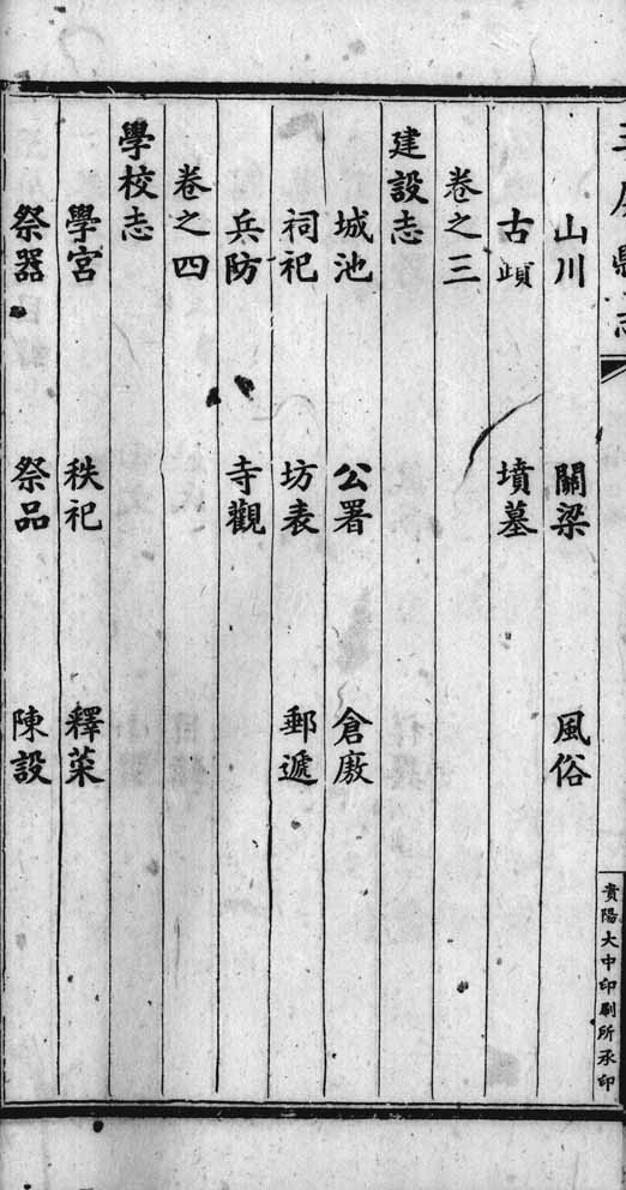 山川 關梁 風俗
古蹟 墳墓
卷之三
建設志
城池 公署 倉廒
祠祀 坊表 郵遞
兵防 寺觀
卷之四
學校志
學宮 秩祀 釋菜
祭器 祭品 陳設
縣志
貴陽大中印刷所承印